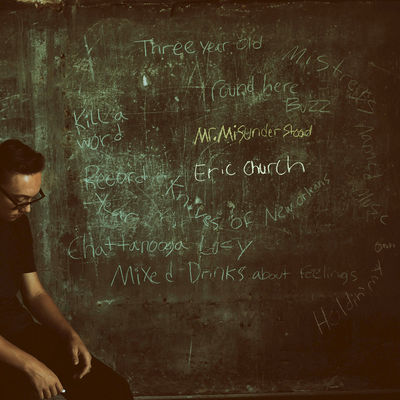 Three year old
Mistress named music
Round here
Buzz
Kill a
word
Mr. Misunderstood
Record
Year
Eric Church
Knives of New Orleans
Chattanooga Lucy
Mixed Drinks about feelings
Holdin my
own